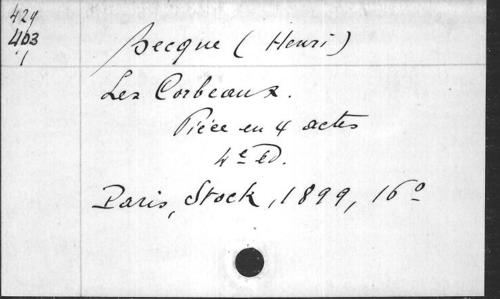 429
403
1
Becque (Henri)
Les Corbeaux.
Pièce en 4 actes
4e Ed.
Paris, Stock, 1899, 16o